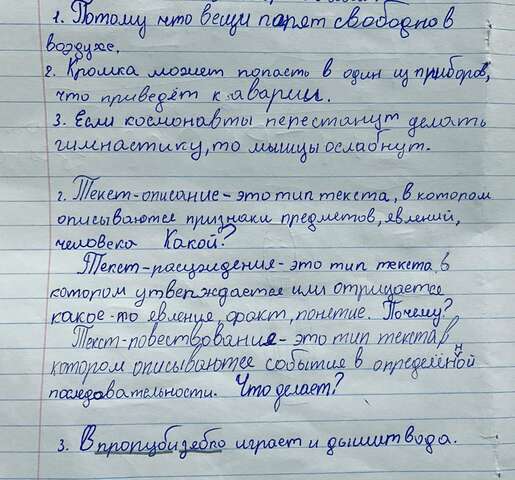 1. Потому что вещи парят свободно в
воздухе.
2. Кромка может попасть в один из приборов,
что приведёт к аварии.
3. Если космонавты перестанут делать
гимнастику, то мышцы ослабнут.
2. Текст-описание - это тип текста, в котором
описываются признаки предметов, явлений,
человека Какой?
Текст-расуждения - это тип текста, в
котором утверждается или отрицается
какое-то явление, факт, понятие. Почему?
Текст-повествование - это тип текста, в
котором описываются события в определённой
последовательности. Что делает?
3. В играет и дышит вода.